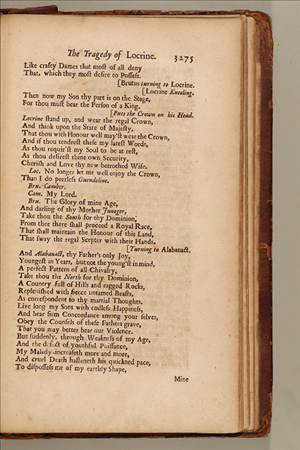 The Tragedy of Locrine. 3275
Like crafty Dames that most of all deny
That, which they most desire to Possess.
[Brutus turning to Locrine.
[Locrine Kneeling.
Then now my Son thy part is on the Stage,
For thou must bear the Person of a King.
[Puts the Crown on his Head.
Locrine stand up, and wear the regal Crown,
And think upon the State of Majesty,
That thou with Honour well may'st wear the Crown,
And if thou tendrest these my latest Words,
As thou requir'st my Soul to be at rest,
As thou desirest thine own Security,
Cherish and Love thy new betrothed Wife.
Loc. No longer let me well enjoy the Crown,
Than I do peerless Guendeline.
Bru. Camber.
Cam. My Lord.
Bru. The Glory of mine Age,
And darling of thy Mother Junoger,
Take thou the South for thy Dominion,
From thee there shall proceed a Royal Race,
That shall maintain the Honour of this Land,
That sway the regal Scepter with their Hands.
[Turning to Albanact.
And Albanact, thy Father's only Joy,
Youngest in Years, but not the young'st in mind,
A perfect Pattern of all Chivalry,
Take thou the North for thy Dominion,
A Country full of Hills and ragged Rocks,
Replenished with fierce untamed Beasts,
As correspondent to thy martial Thoughts.
Live long my Sons with endless Happiness,
And bear firm Concordance among your selves,
Obey the Counsels of these Fathers grave,
That you may better bear our Violence.
But suddenly, through Weakness of my Age,
And the defect of youthful Puissance,
My Malady increaseth more and more,
And cruel Death hasteneth his quickned pace,
To dispossess me of my earthly Shape,
Mine